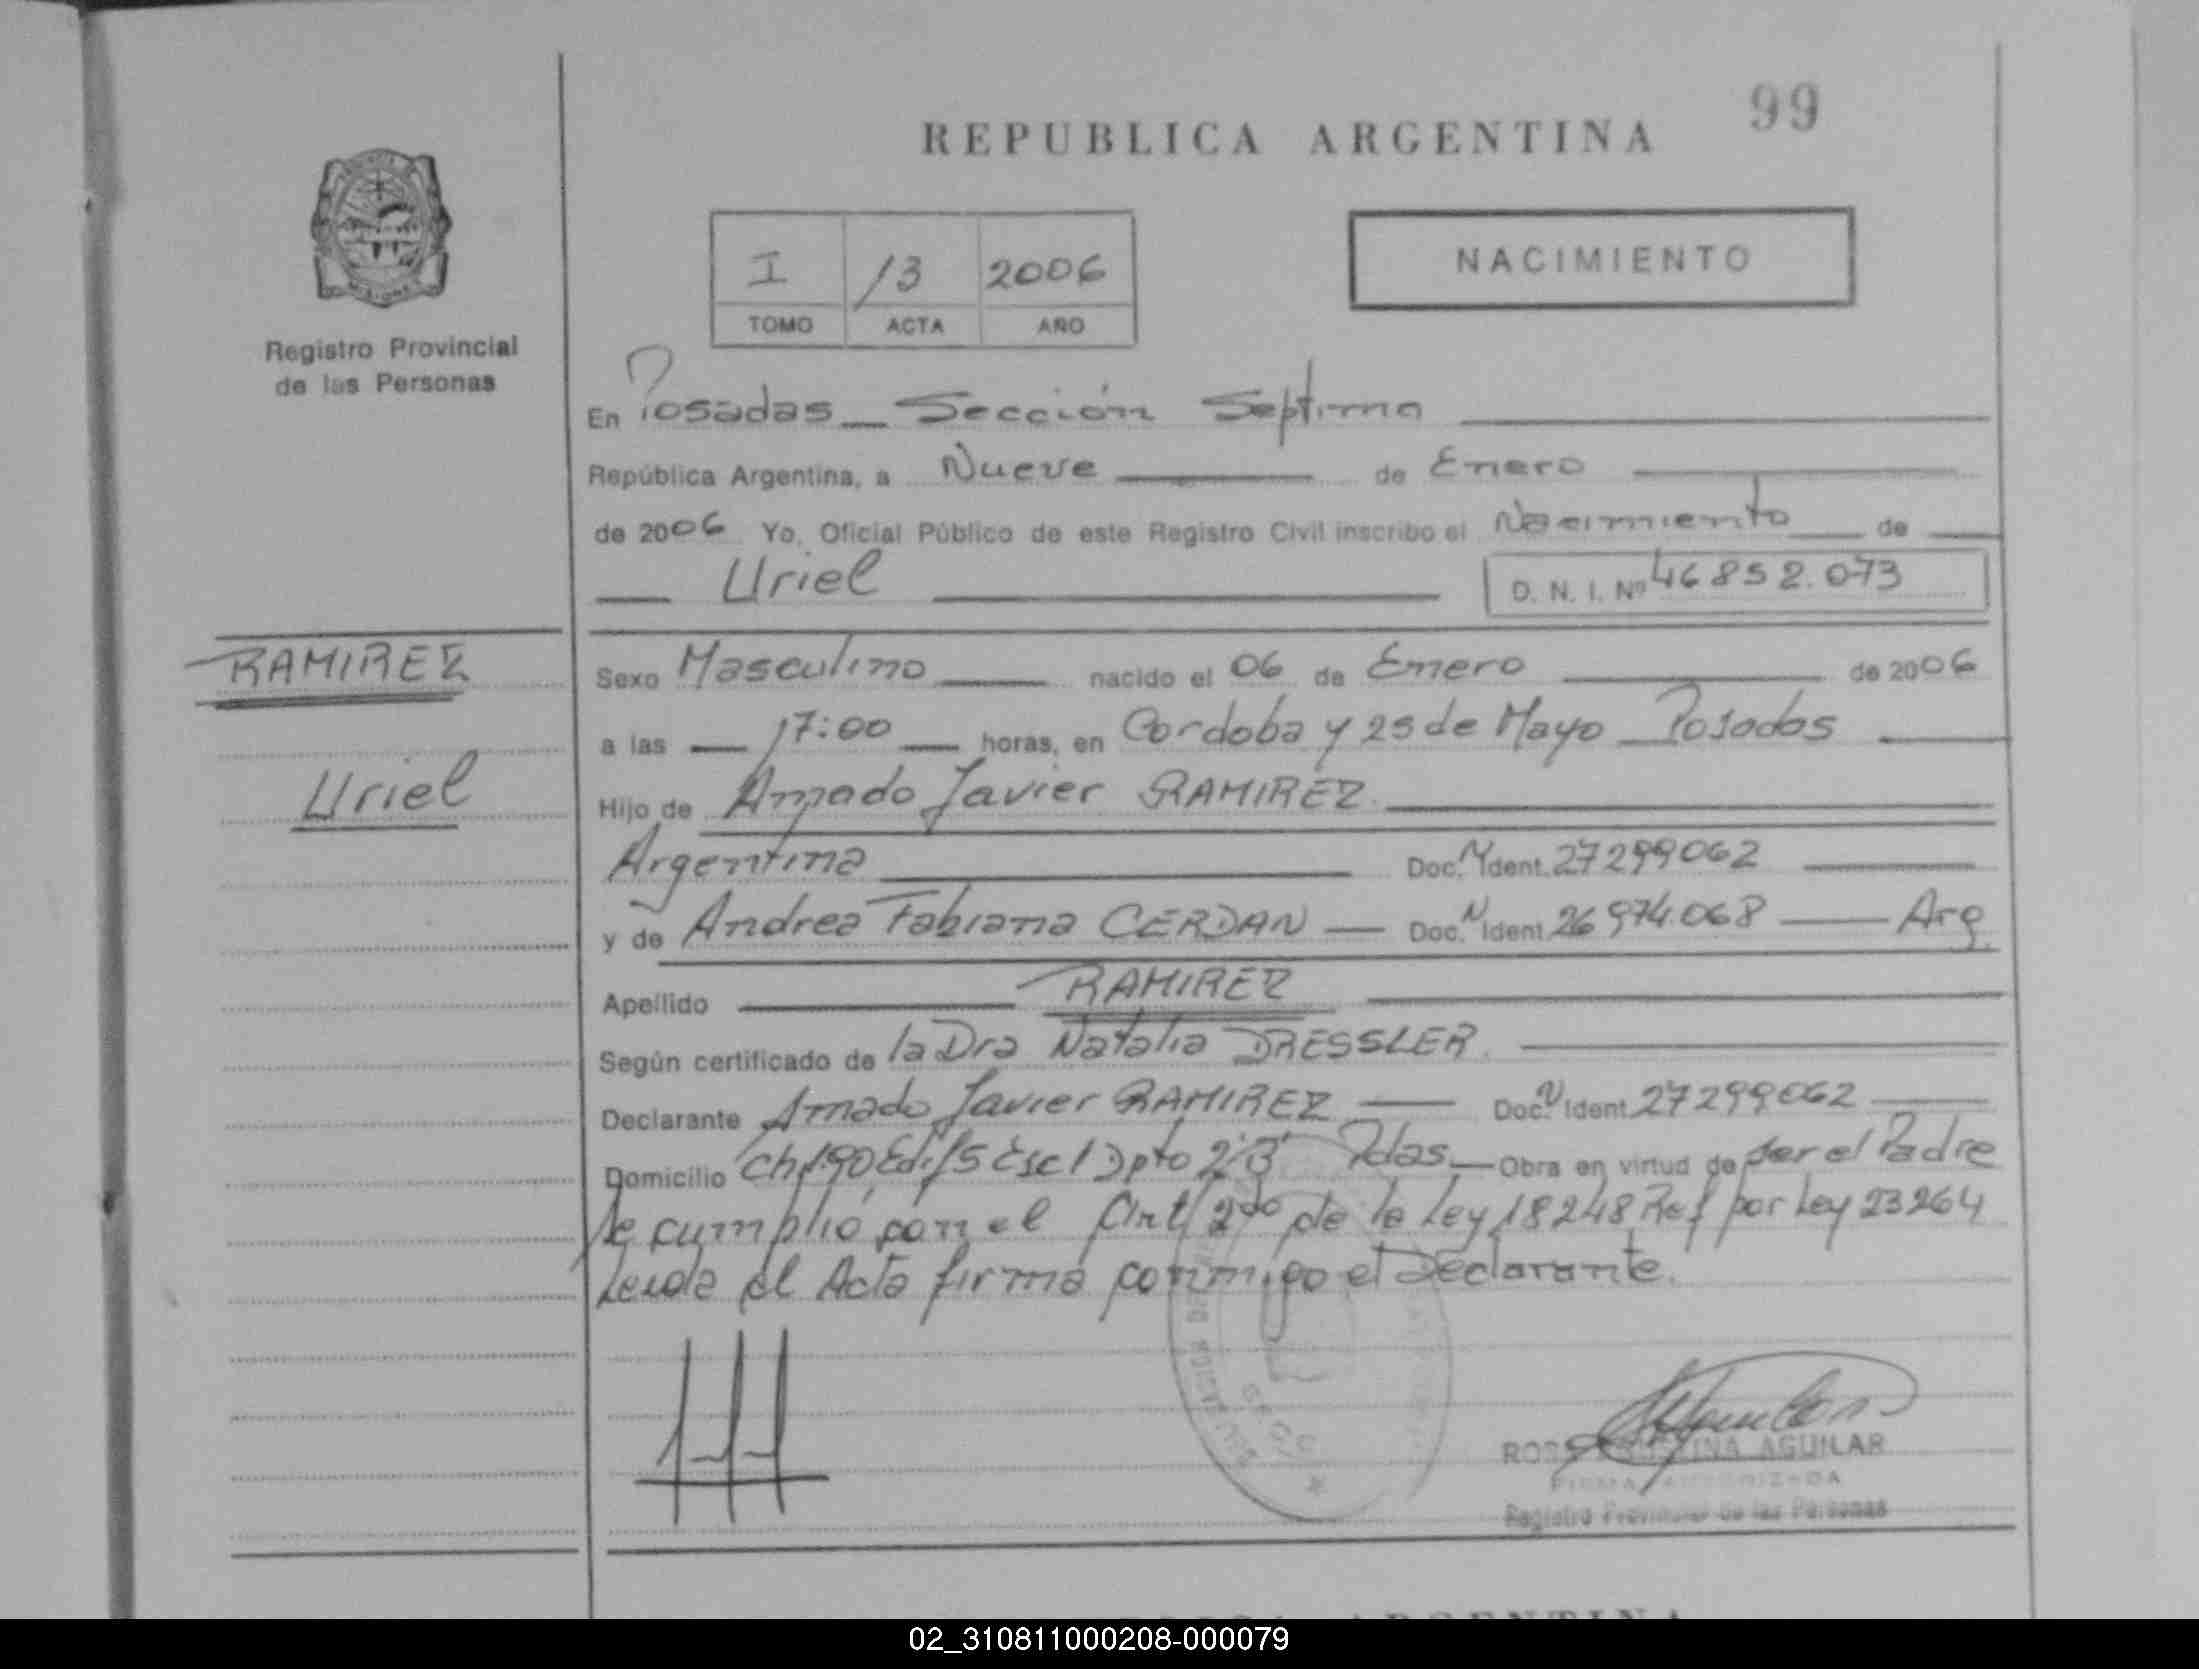 99
REPUBLICA ARGENTINA
MISIONES
Registro Provincial
de las Personas
I 13 2006
TOMO ACTA AÑO
NACIMIENTO
En Posadas Sección Septima
República Argentina, a Nueve de Enero
de 2006 Yo, Oficial Público de este Registro Civil inscribo el Nacimiento de
Uriel D. N. I. Nº 46852.073
RAMIREZ
Uriel
Sexo Masculino nacido el 06 de Enero de 2006
a las 17:00 horas, en Cordoba y 25 de Mayo Posadas
Hijo de Amado Javier RAMIREZ
Argentina Doc. N Ident. 27299062
y de Andrea Fabiana CERDAN Doc. N Ident 26974.068 Arg.
Apellido RAMIREZ
Según certificado de la Dra Natalia DRESSLER.
Declarante Amado Javier RAMIREZ Doc. N Ident 27299062
Domicilio Ch 190 Edif 5 Esc 1 Dpto 2 B Pdas. Obra en virtud de ser el Padre
Se cumplió con el Art 2do de la Ley 18248 Ref por Ley 23264
Leida el Acta firma conmigo el Declarante.
AGUILAR
FIRMA AUTORIZADA
Registro Provincial de las Personas
REPUBLICA ARGENTINA
02_310811000208-000079